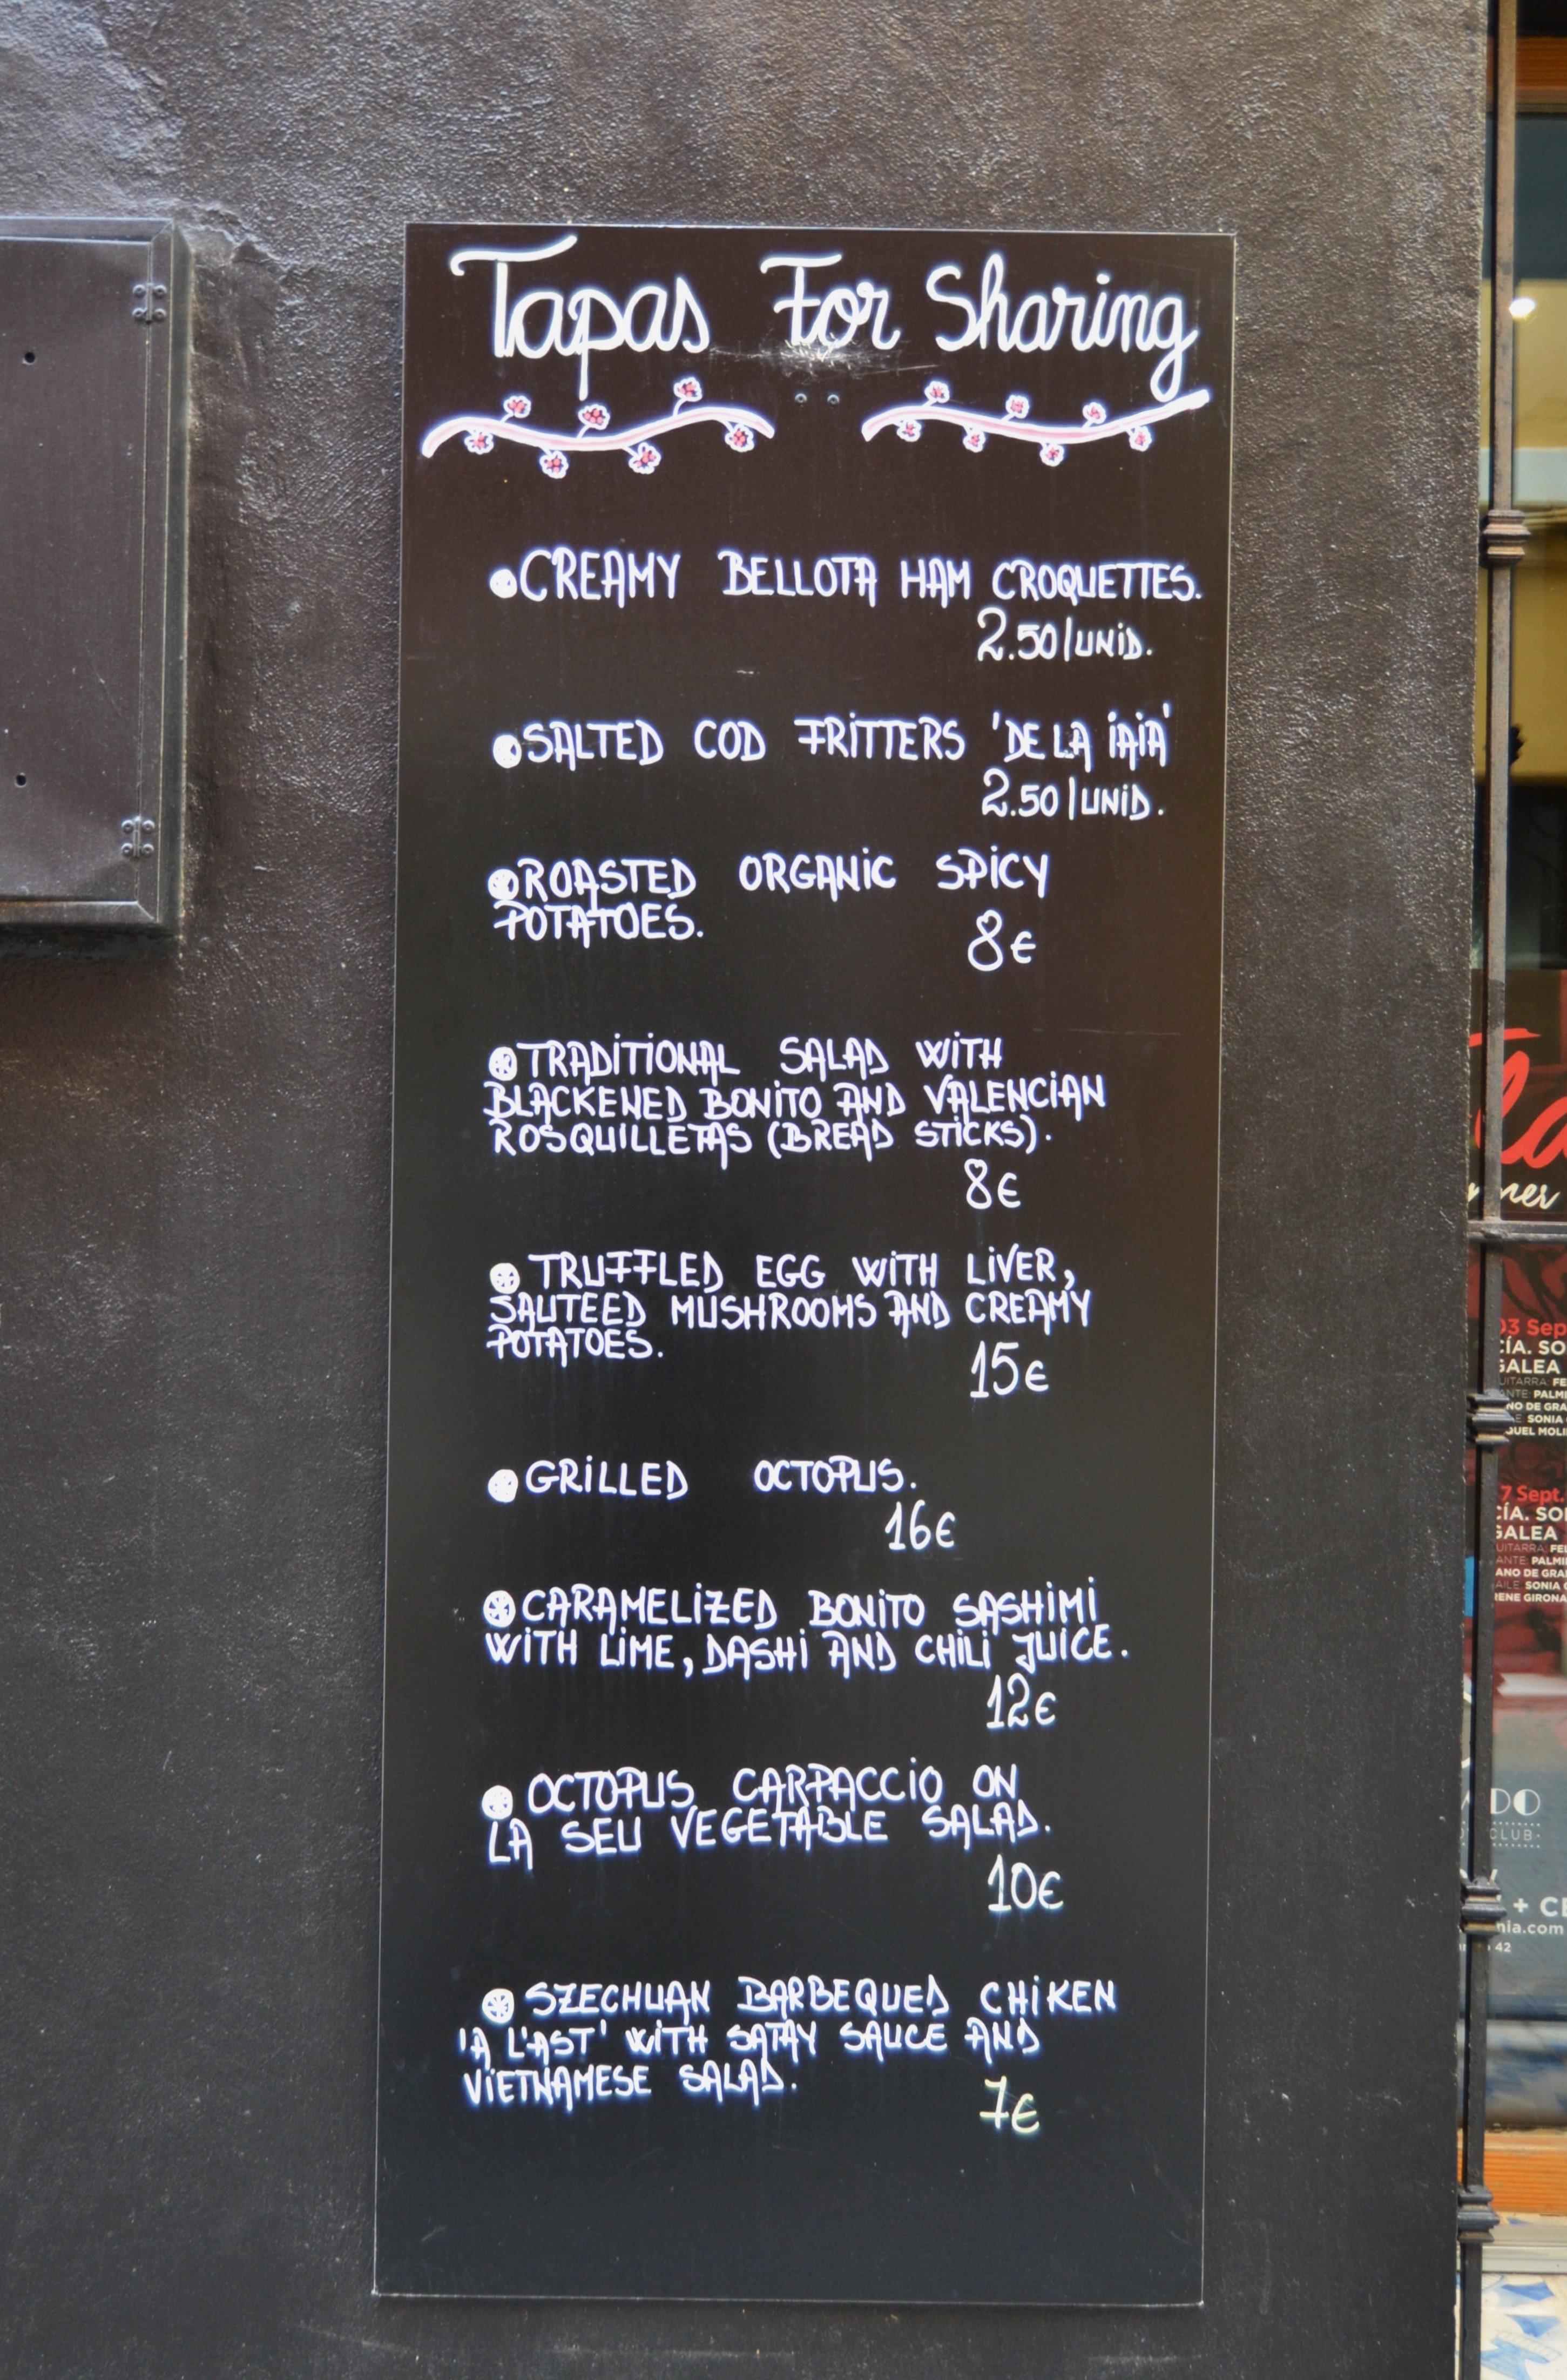 Tapas For Sharing
CREAMY BELLOTA HAM CROQUETTES.
2.50/UNID.
SALTED COD FRITTERS 'DE LA IAIA'
2.50/UNID.
ROASTED ORGANIC SPICY
POTATOES.
8€
TRADITIONAL SALAD WITH
BLACKENED BONITO AND VALENCIAN
ROSQUILLETAS (BREAD STICKS).
8€
TRUFFLED EGG WITH LIVER,
SAUTEED MUSHROOMS AND CREAMY
POTATOES.
15€
GRILLED OCTOPUS.
16€
CARAMELIZED BONITO SASHIMI
WITH LIME, DASHI AND CHILI JUICE.
12€
OCTOPUS CARPACCIO ON
LA SEU VEGETABLE SALAD.
10€
SZECHUAN BARBEQUED CHIKEN
'A L'AST' WITH SATAY SAUCE AND
VIETNAMESE SALAD.
7€
03 Sep
CÍA. SO
GALEA
PALMI
SONIA
7 Sept.
CÍA. SO
GALEA
PALMI
SONIA
GIRONA
CLUB
42